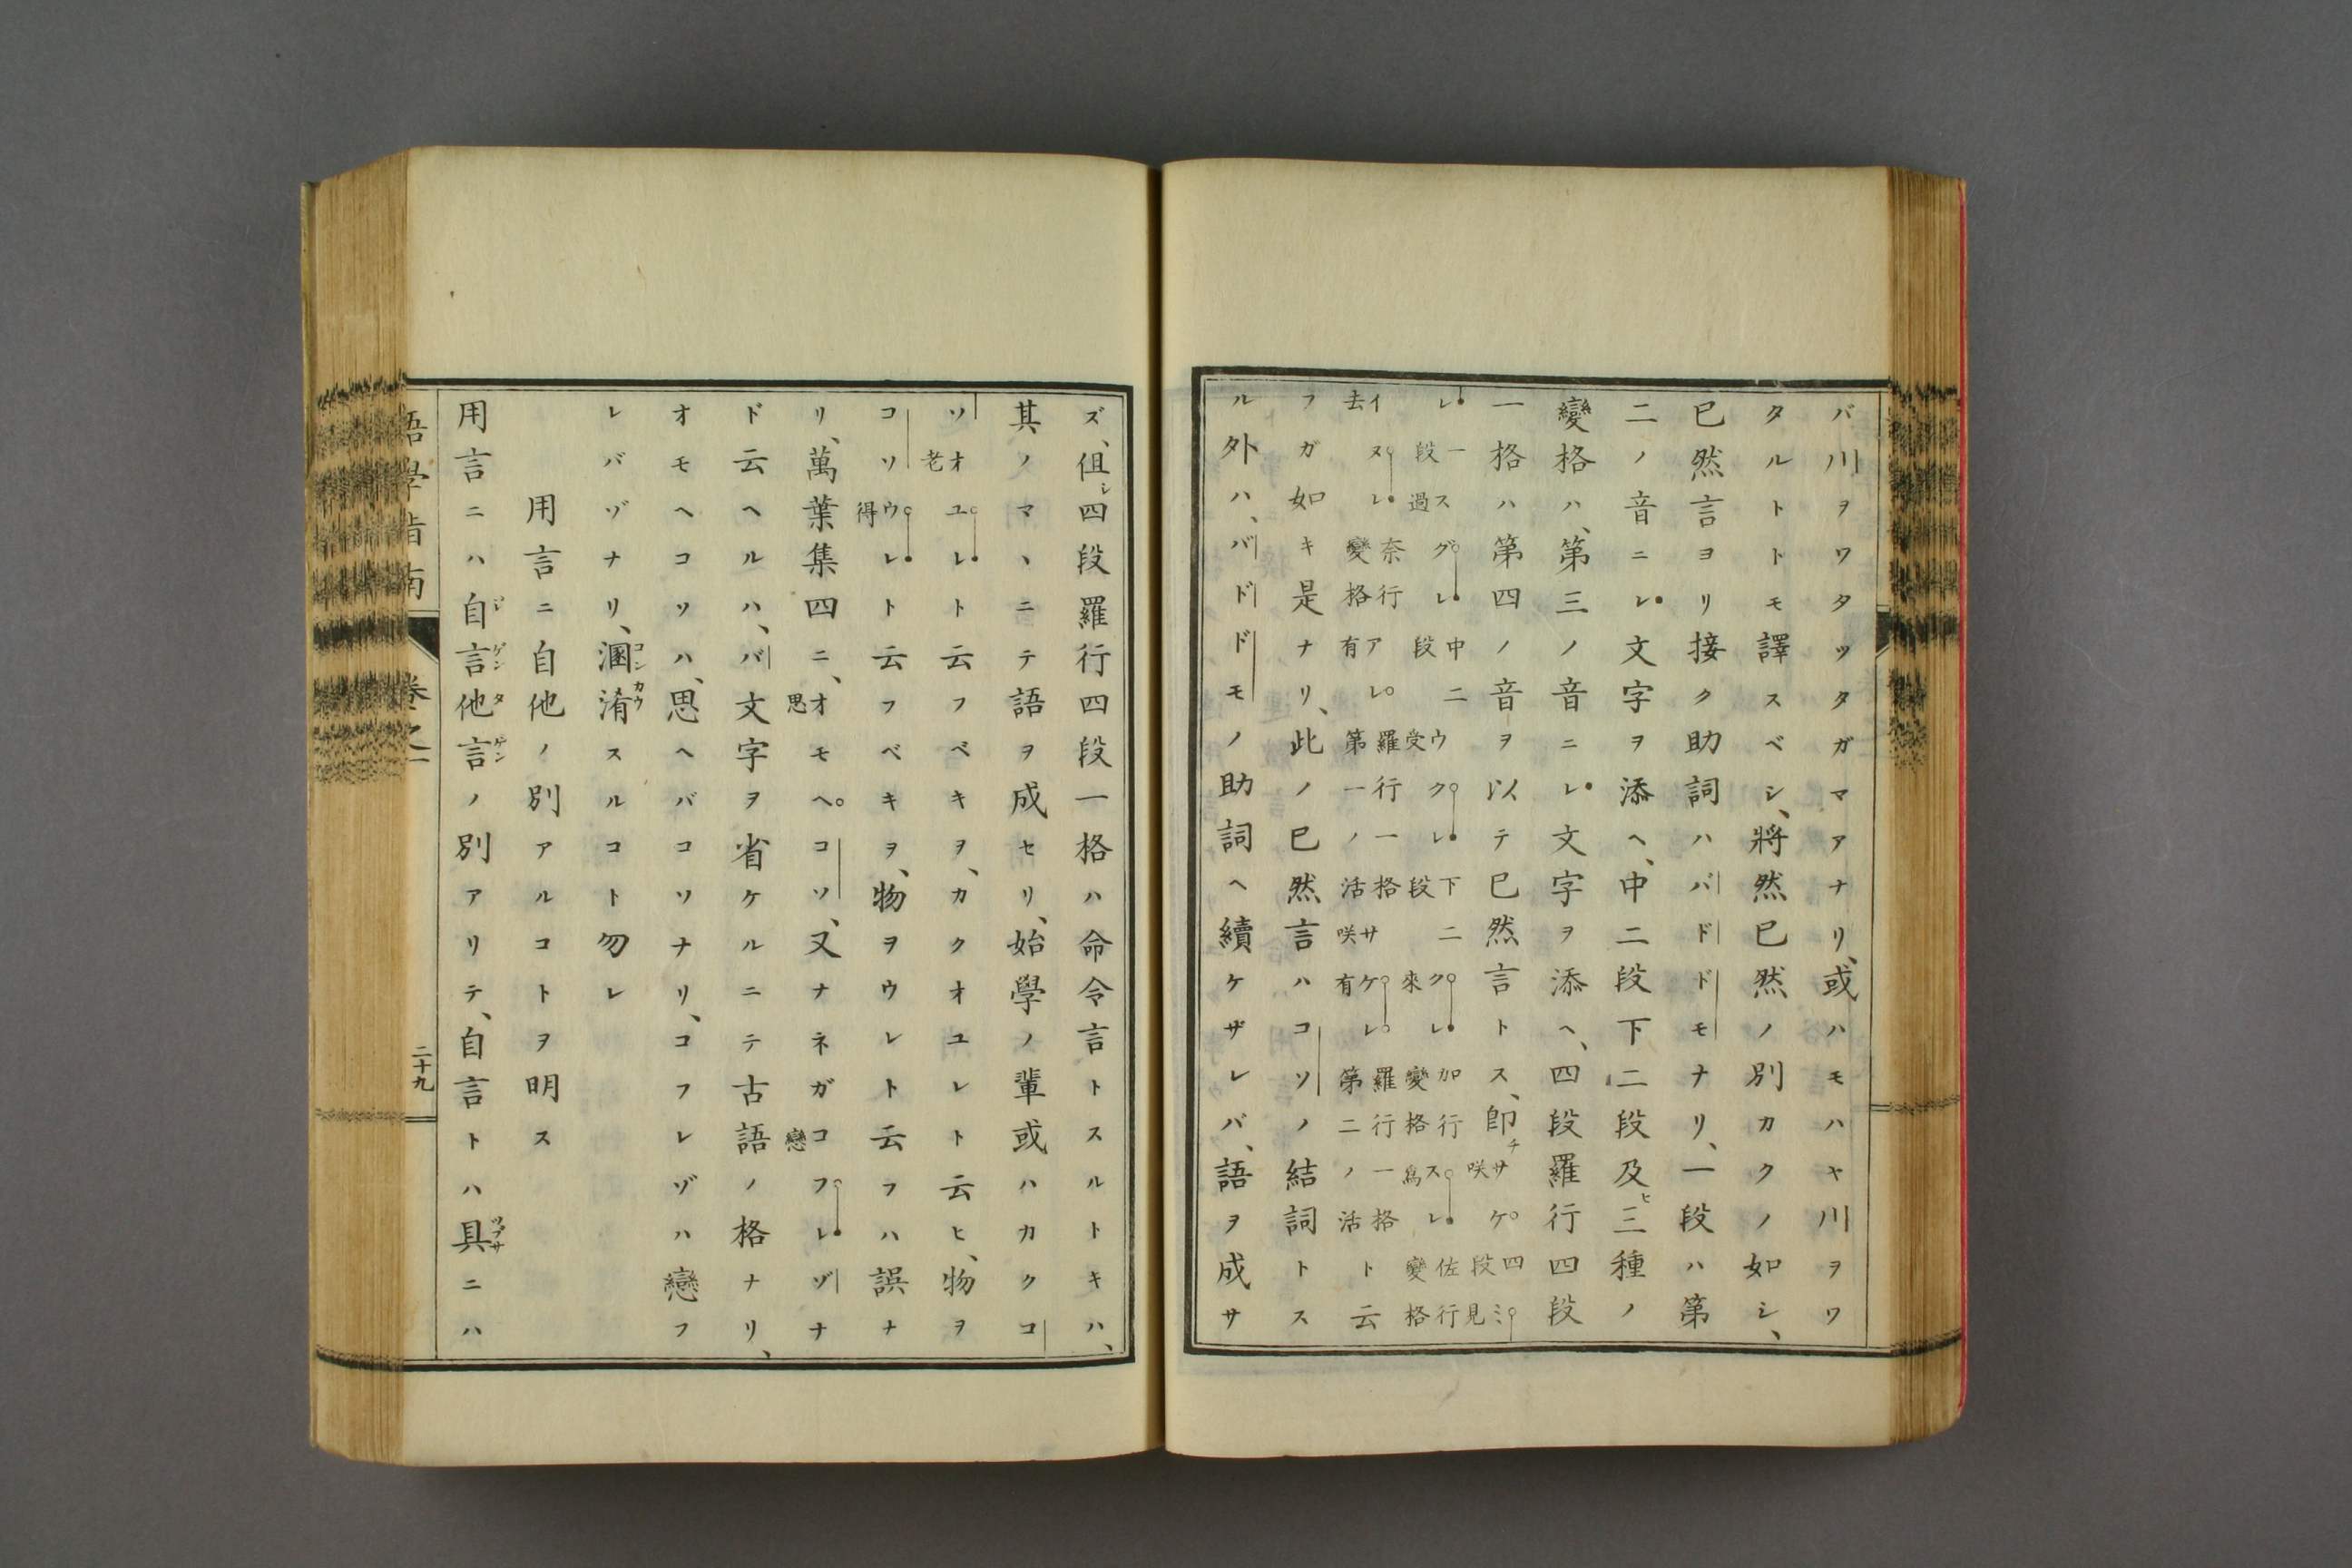 バ川ヲワタツタガマアナリ、或ハモハヤ川ヲワ
タルトトモ譯スベシ、將然已然ノ別カクノ如シ、
已然言ヨリ接ク助詞ハバドドモナリ、一段ハ第
二ノ音ニレ文字ヲ添ヘ、中二段下二段及ヒ三種ノ
變格ハ、第三ノ音ニレ文字ヲ添ヘ、四段羅行四段
一格ハ第四ノ音ヲ以テ已然言トス、卽チ咲サケ四段見ミ
レ一段過スグレ中二段受ウクレ下二段來クレ加行變格爲スレ佐行變格
去イヌレ奈行變格有アレ羅行一格第一ノ活咲有サケレ羅行一格第二ノ活ト云
フガ如キ是ナリ、此ノ已然言ハコソノ結詞トス
ル外ハ、バドドモノ助詞ヘ續ケザレバ、語ヲ成サ
ズ、但シ四段羅行四段一格ハ命令言トスルトキハ、
其ノマヽニテ語ヲ成セリ、始學ノ輩或ハカクコ
ソ老オユレト云フベキヲ、カクオユレト云ヒ、物ヲ
コソ得ウレト云フベキヲ、物ヲウレト云フハ誤ナ
リ、萬葉集四ニ、思オモヘコソ、又ナネガ戀コフレゾナ
ド云ヘルハ、バ文字ヲ省ケルニテ古語ノ格ナリ、
オモヘコソハ、思ヘバコソナリ、コフレゾハ戀フ
レバゾナリ、溷コン淆カウスルコト勿レ
用言ニ自他ノ別アルコトヲ明ス
用言ニハ自ジ言ゲン他タ言ゲンノ別アリテ、自言トハ具ツブサニハ
語學指南
卷之二
二十九